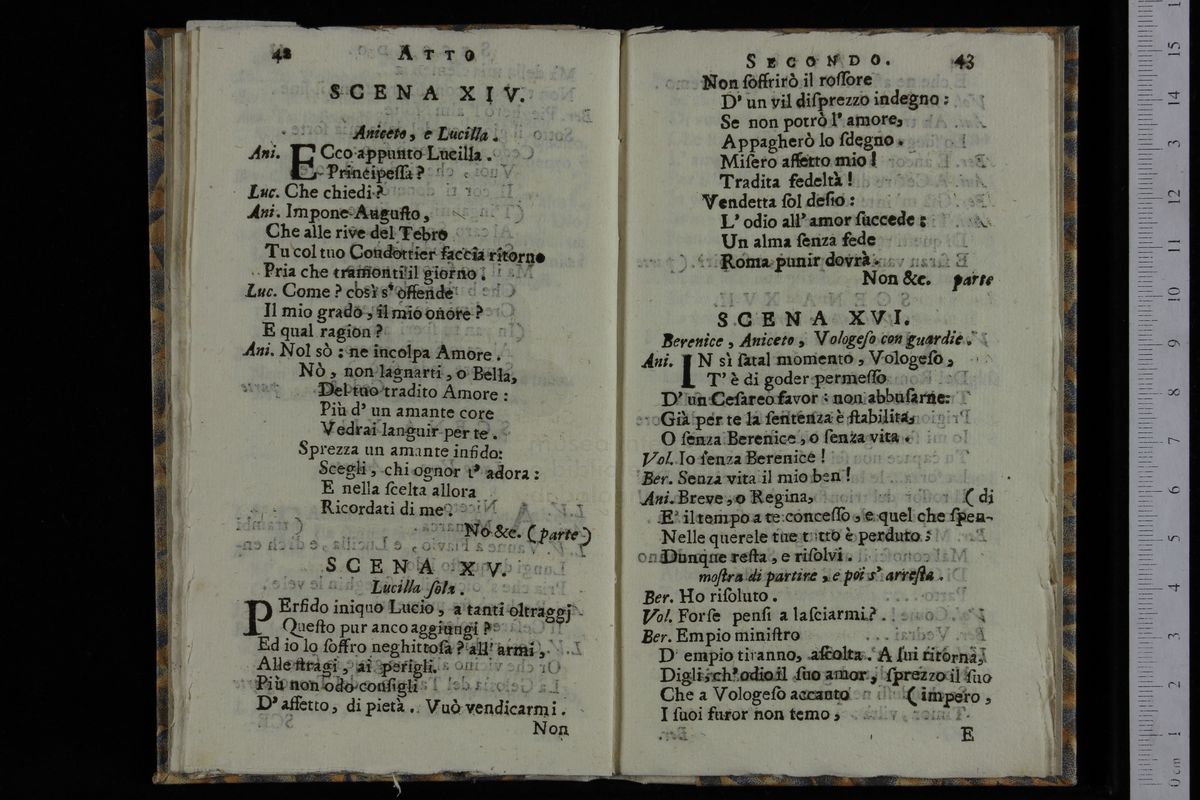 42 ATTO
SCENA XIV.
Aniceto, e Lucilla.
Ani. ECco appunto Lucilla.
Principeſſa?
Luc. Che chiedi?
Ani. Impone Auguſto,
Che alle rive del Tebro
Tu col tuo Condottier faccia ritorno
Pria che tramonti il giorno.
Luc. Come? così s' offende
Il mio grado, il mio onore?
E qual ragion?
Ani. Nol sò: ne incolpa Amore.
Nò, non lagnarti, o Bella,
Del tuo tradito Amore:
Più d' un amante core
Vedrai languir per te.
Sprezza un amante infido:
Scegli, chi ognor t' adora:
E nella ſcelta allora
Ricordati di me.
No &c. (parte)
SCENA XV.
Lucilla ſola.
PErfido iniquo Lucio, a tanti oltraggj
Queſto pur anco aggiungi?
Ed io lo ſoffro neghittoſa? all' armi,
Alle ſtragi, ai perigli.
Più non odo conſigli
D' affetto, di pietà. Vuò vendicarmi.
Non
SECONDO. 43
Non ſoffrirò il roſſore
D' un vil diſprezzo indegno:
Se non potrò l' amore,
Appagherò lo ſdegno.
Miſero affetto mio!
Tradita fedeltà!
Vendetta ſol deſio:
L' odio all' amor ſuccede:
Un alma ſenza fede
Roma punir dovrà.
Non &c. parte
SCENA XVI.
Berenice, Aniceto, Vologeſo con guardie.
Ani. IN sì fatal momento, Vologeſo,
T' è di goder permeſſo
D' un Ceſareo favor: non abbuſarne:
Già per te la ſentenza è ſtabilita,
O ſenza Berenice, o ſenza vita.
Vol. Io ſenza Berenice!
Ber. Senza vita il mio ben!
Ani. Breve, o Regina, (di
E' il tempo a te conceſſo, e quel che ſpen-
Nelle querele tue tutto è perduto:
Dunque reſta, e riſolvi.
moſtra di partire, e poi s' arreſta.
Ber. Ho riſoluto.
Vol. Forſe penſi a laſciarmi?
Ber. Empio miniſtro
D' empio tiranno, aſcolta. A lui ritorna,
Digli, ch' odio il ſuo amor, ſprezzo il ſuo
Che a Vologeſo accanto (impero,
I ſuoi furor non temo,
E